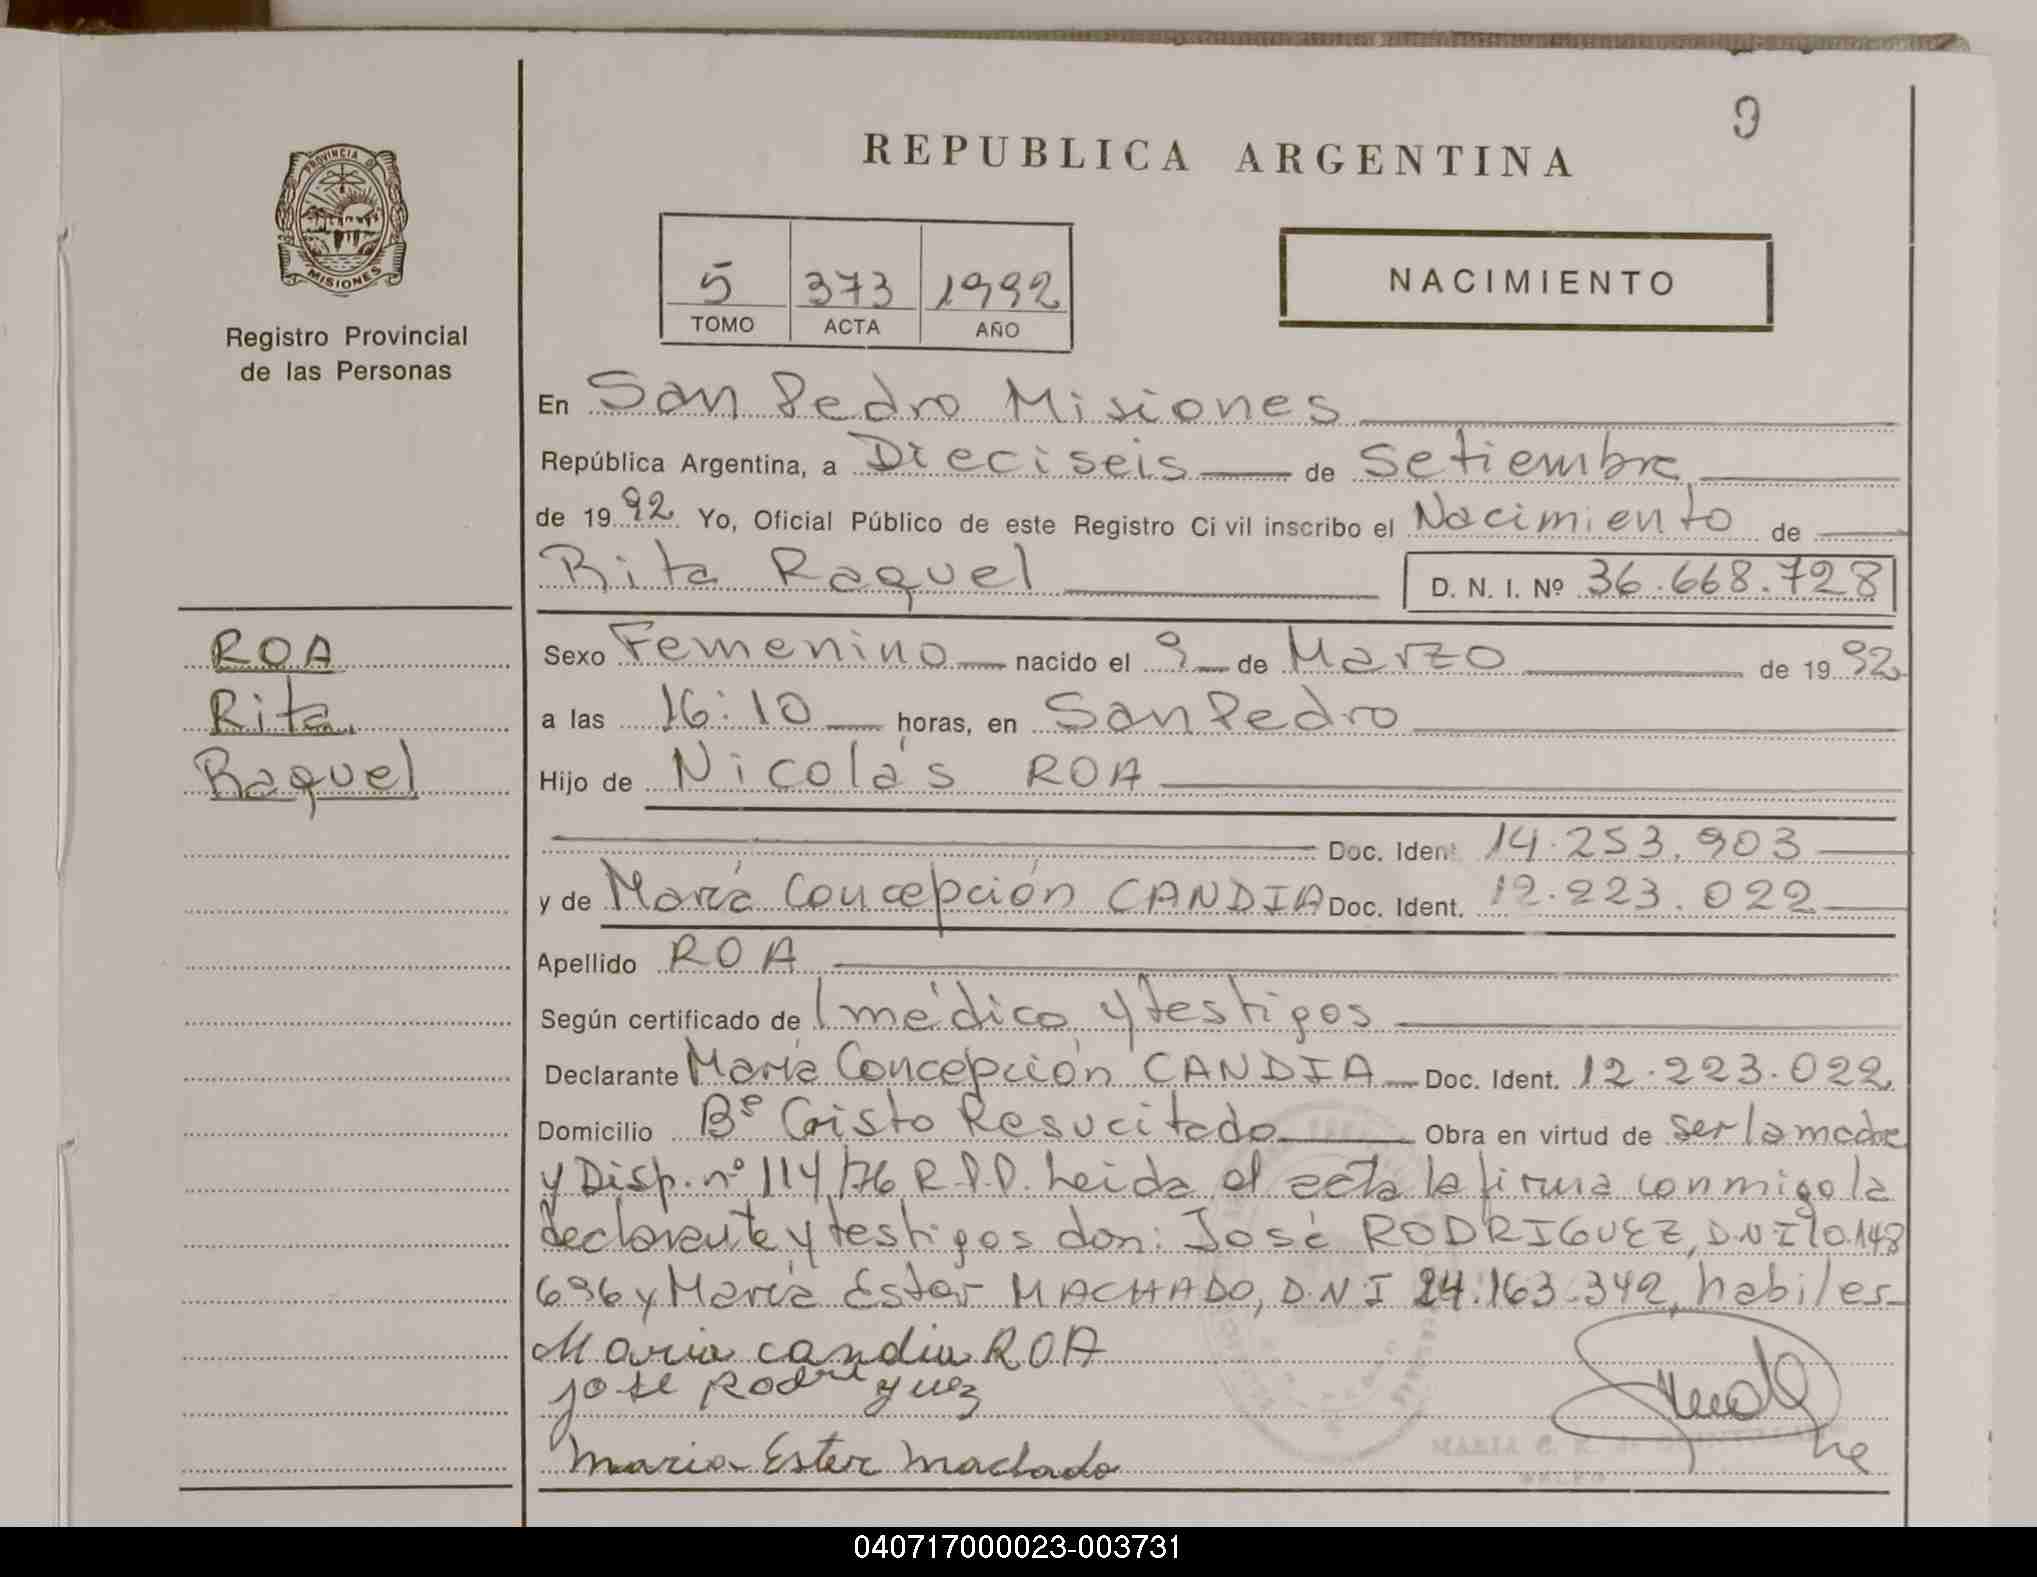 9
REPUBLICA ARGENTINA
PROVINCIA D
MISIONES
Registro Provincial
de las Personas
5 373 1992
TOMO ACTA AÑO
NACIMIENTO
En San Pedro Misiones
República Argentina, a Dieciseis de Setiembre
de 1992 Yo, Oficial Público de este Registro Civil inscribo el Nacimiento de
Rita Raquel D. N. I. Nº 36.668.728
ROA
Rita
Raquel
Sexo Femenino nacido el 9 de Marzo de 1992
a las 16:10 horas, en San Pedro
Hijo de Nicolás ROA
Doc. Ident 14.253.903
y de María Concepción CANDIA Doc. Ident. 12.223.022
Apellido ROA
Según certificado de médico y testigos
Declarante María Concepción CANDIA Doc. Ident. 12.223.022
Domicilio Bº Cristo Resucitado Obra en virtud de ser la madre
y Disp. nº 114/76 R.P.P. Leida el acta la firma conmigo la
declarante y testigos don: José RODRIGUEZ, D.N.I 10.148
696 y María Ester MACHADO, D.N.I 24.163.342, habiles
Maria candia ROA
jose Rodriguez
Maria Ester Machado
040717000023-003731